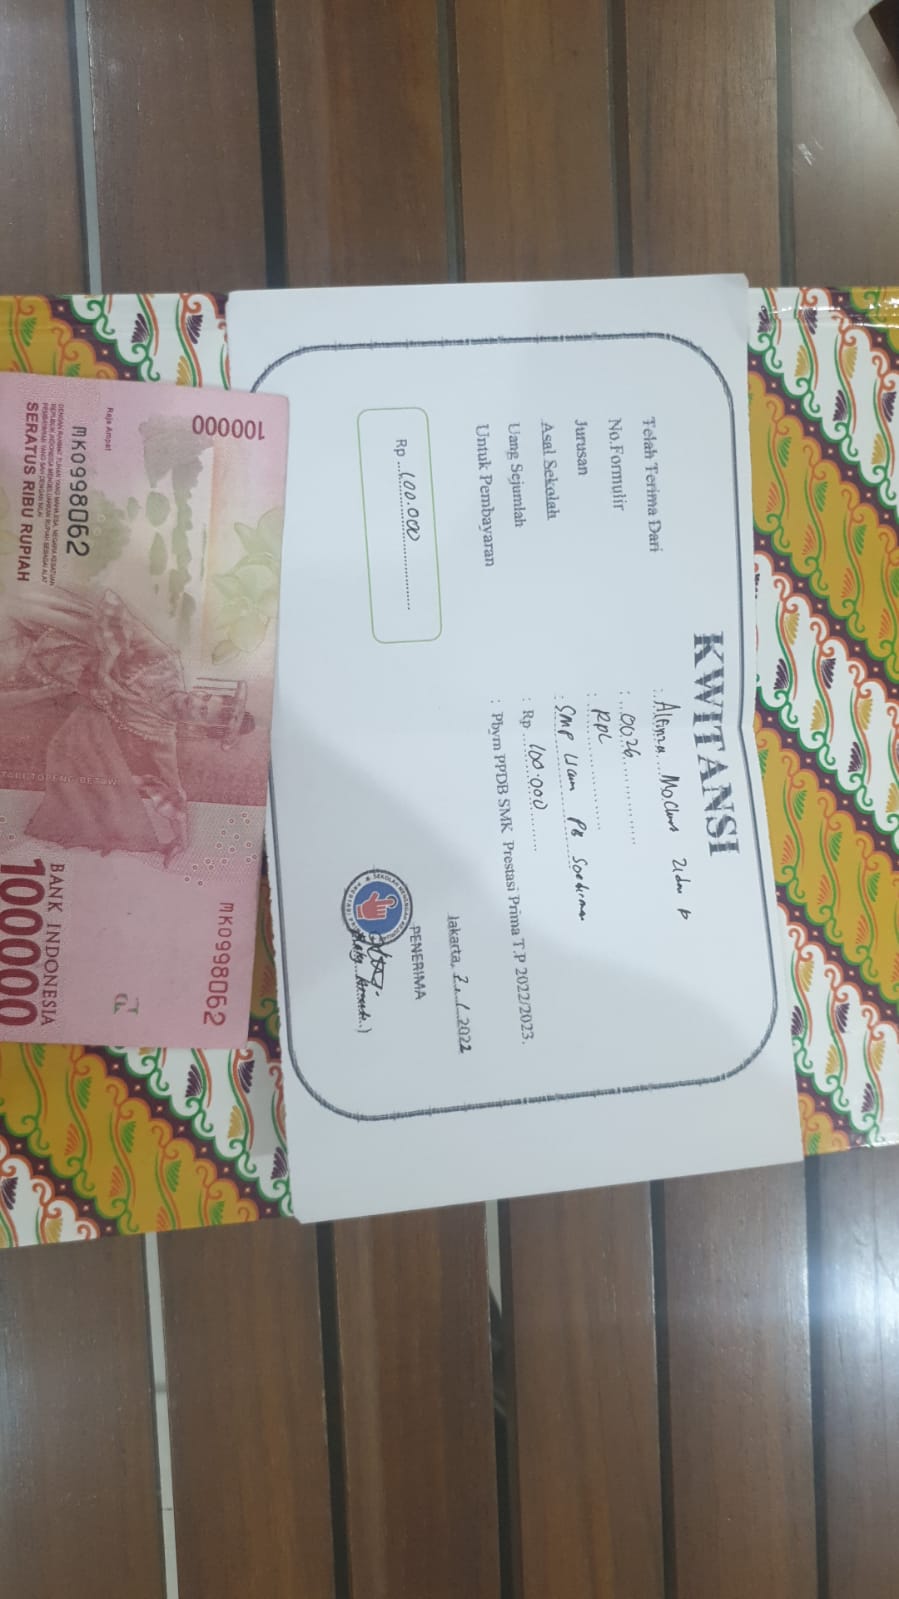 KWITANSI
Telah Terima Dari :
No.Formulir : 0026
Jurusan : RPL
Asal Sekolah : SMP PB Soedirman
Uang Sejumlah : Rp 100.000
Untuk Pembayaran : Pbyrn PPDB SMK Prestasi Prima T.P 2022/2023.
Jakarta, 2022
Rp 100.000
PENERIMA
100000
MK0998062
Raja Ampat
MK0998062
DENGAN RAHMAT TUHAN YANG MAHA ESA, NEGARA KESATUAN
REPUBLIK INDONESIA MENGELUARKAN RUPIAH SEBAGAI ALAT
PEMBAYARAN YANG SAH DENGAN NILAI
SERATUS RIBU RUPIAH
BANK INDONESIA
100000